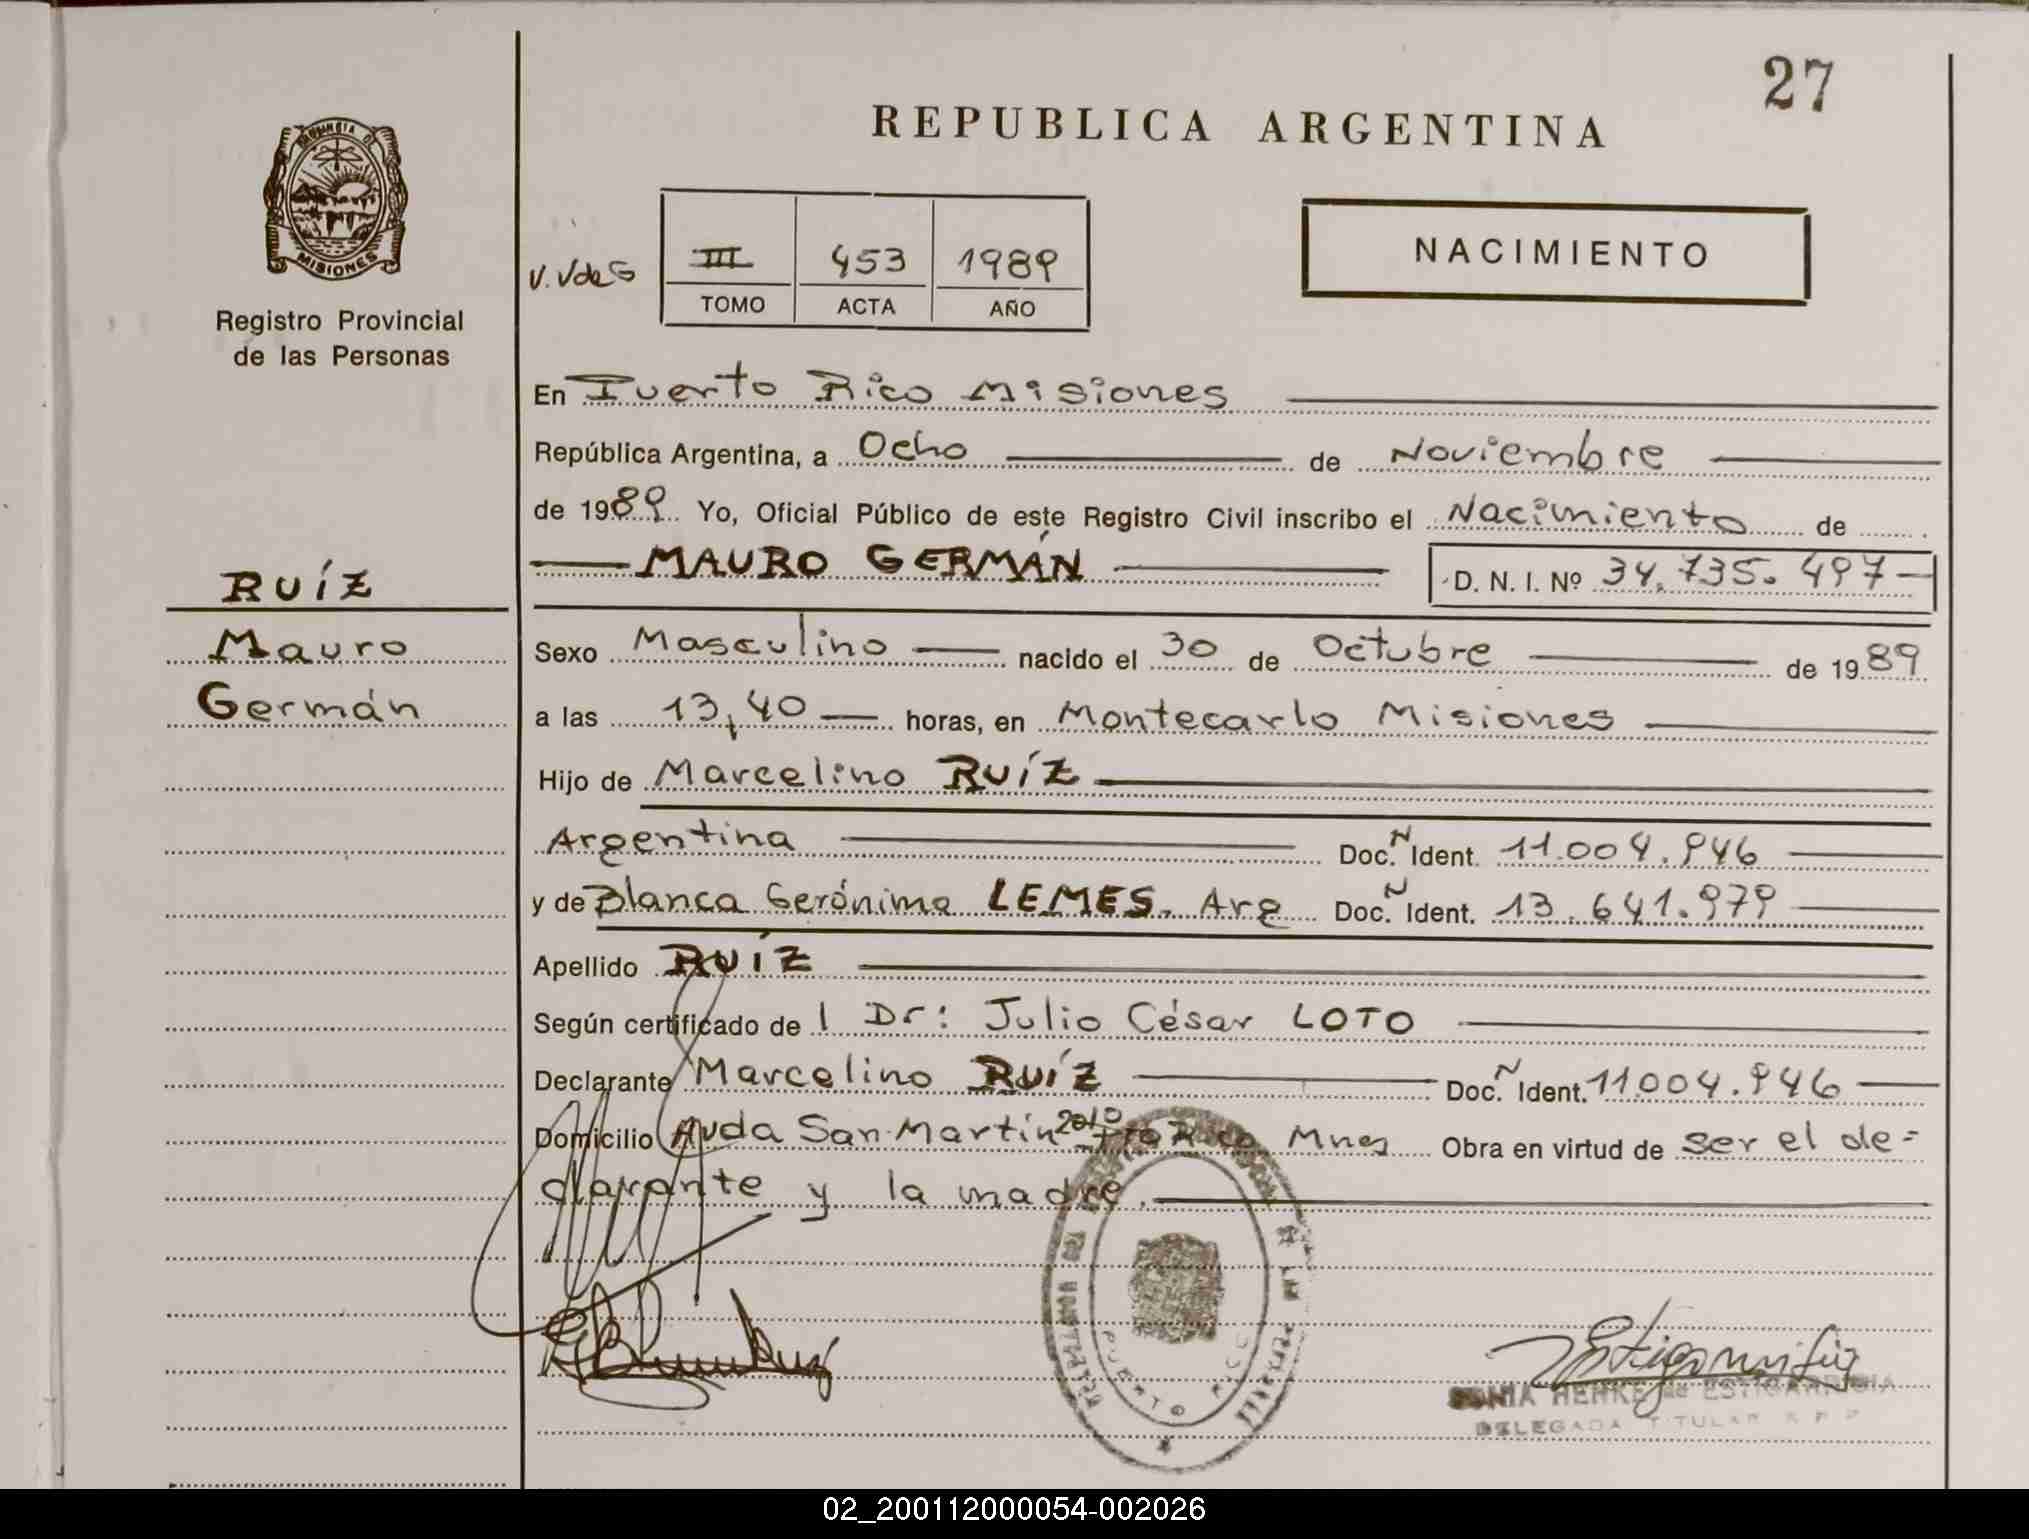 27
REPUBLICA ARGENTINA
PROVINCIA DE
MISIONES
Registro Provincial
de las Personas
V. V de G
III 453 1989
TOMO ACTA AÑO
NACIMIENTO
En Puerto Rico Misiones
República Argentina, a Ocho de Noviembre
de 1989 Yo, Oficial Público de este Registro Civil inscribo el Nacimiento de
MAURO GERMÁN D. N. I. Nº 34.735.497
RUÍZ
Mauro
Germán
Sexo Masculino nacido el 30 de Octubre de 1989
a las 13,40 horas, en Montecarlo Misiones
Hijo de Marcelino RUÍZ
Argentina Doc. N Ident. 11.004.946
y de Blanca Gerónima LEMES. Arg Doc. N Ident. 13.641.979
Apellido RUÍZ
Según certificado de l Dr: Julio César LOTO
Declarante Marcelino RUÍZ Doc. N Ident. 11.004.946
Domicilio Avda San Martín 2010 Pto Rico Mnes Obra en virtud de ser el de=
clarante y la madre.
PUERTO RICO
SONIA HENKE de ESTIGARRIBIA
DELEGADA TITULAR R P P
02_200112000054-002026